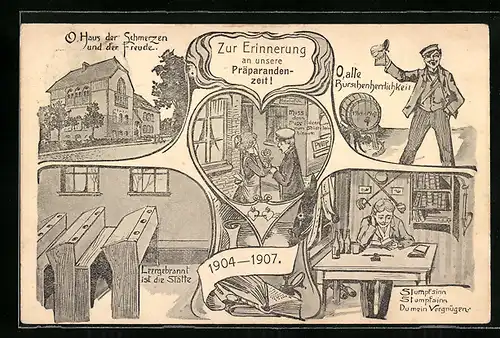 O, Haus der Schmerzen
und der Freude.
Zur Erinnerung
an unsere
Präparanden-
zeit!
O, alte
Burschenherrlichkeit
Leergebrannt
ist die Stätte
1904—1907.
Stumpfsinn
Stumpfsinn
Du mein Vergnügen